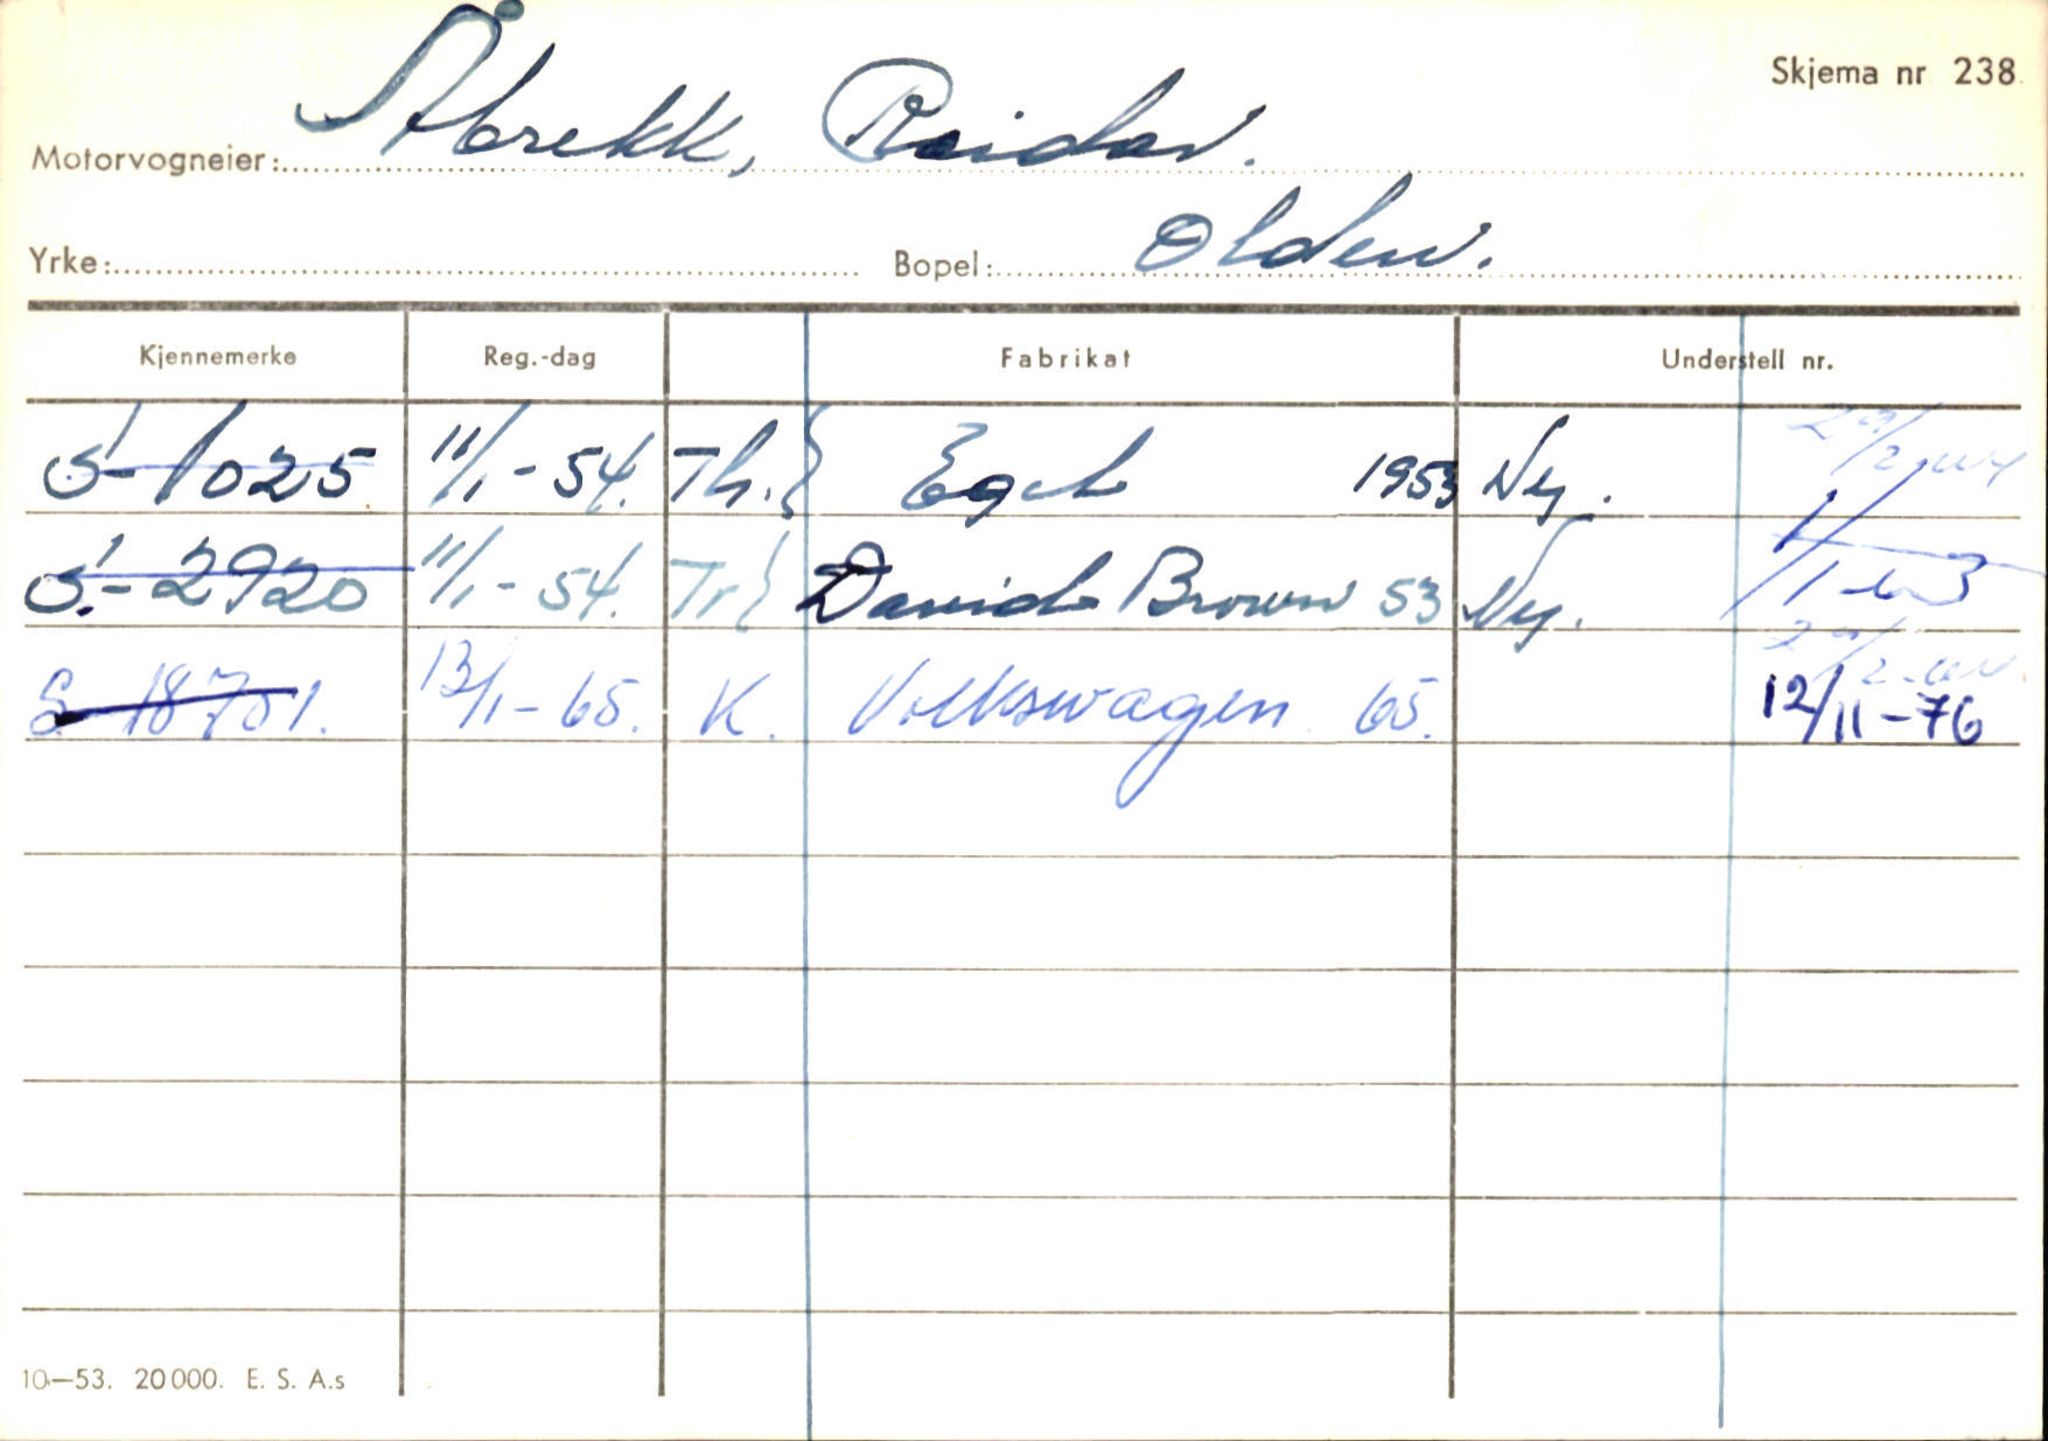 Skjema nr 238.
Motorvogneier: Åbrekk, Reidar.
Yrke: Bopel: Olden.
Kjennemerke Reg.-dag Fabrikat Understell nr.
S-1025 11/1-54. Th. Egel 1953 Ny.
S-2920 11/1-54. Tr David Brown 53 Ny.
S-18701. 13/1-65. K. Volkswagen 65. 12/11-76
10-53. 20000. E. S. A.s